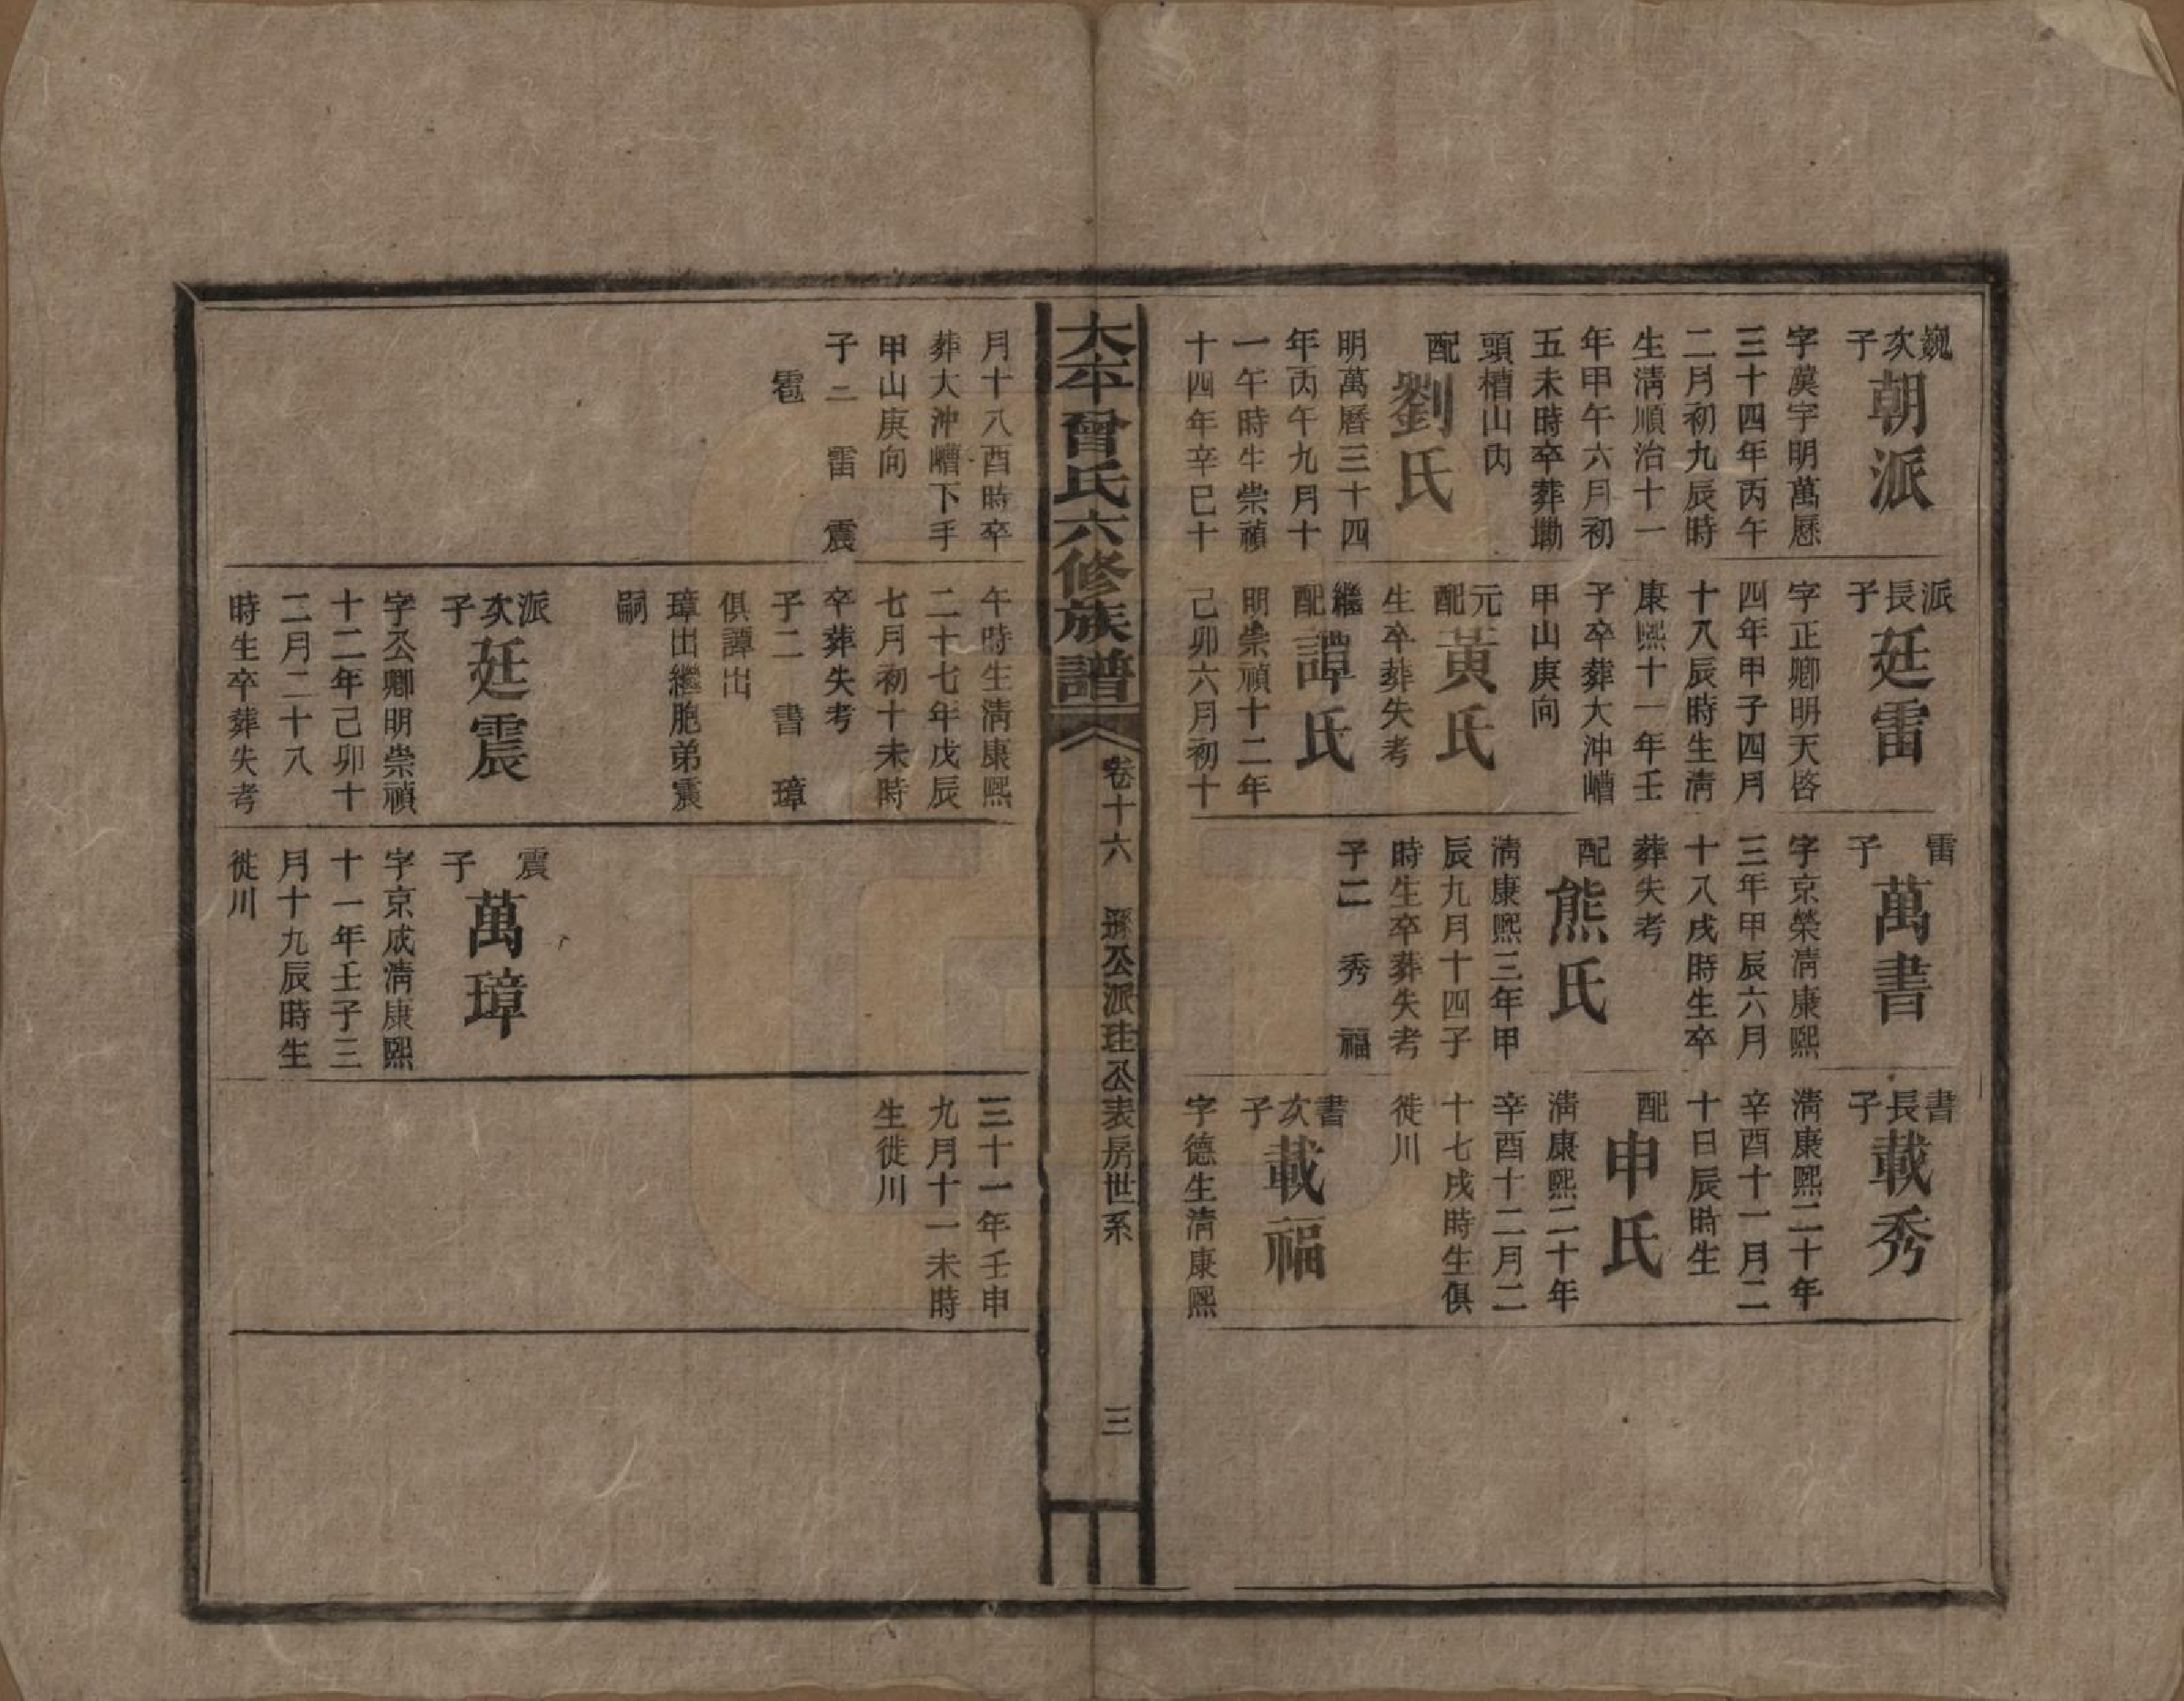 巍次子
朝派
字蓂宇明萬厯
三十四年丙午
二月初九辰時
生清順治十一
年甲午六月初
五未時卒葬墈
頭槽山內
配
劉氏
明萬曆三十四
年丙午九月十
一午時生崇禎
十四年辛巳十
派長子
廷雷
字正卿明天啓
四年甲子四月
十八辰時生清
康熙十一年壬
子卒葬大沖嶆
甲山庚向
元配
黃氏
生卒葬失考
繼配
譚氏
明崇禎十二年
己卯六月初十
雷子
萬書
字京榮清康熙
三年甲辰六月
十八戌時生卒
葬失考
配
熊氏
清康熙三年甲
辰九月十四子
時生卒葬失考
子二 秀 福
書長子
載秀
清康熙二十年
辛酉十一月二
十日辰時生
配
申氏
清康熙二十年
辛酉十二月二
十七戌時生俱
徙川
書次子
載福
字德生清康熙
太平曾氏六修族譜
卷十六 遜公派珪公表房世系
三
月十八酉時卒
葬大沖嶆下手
甲山庚向
子二 雷 震
雹
午時生清康熙
二十七年戊辰
七月初十未時
卒葬失考
子二 書 璋
俱譚出
璋出繼胞弟震
嗣
派次子
廷震
字公卿明崇禎
十二年己卯十
二月二十八
時生卒葬失考
震子
萬璋
字京成清康熙
十一年壬子三
月十九辰時生
徙川
三十一年壬申
九月十一未時
生徙川